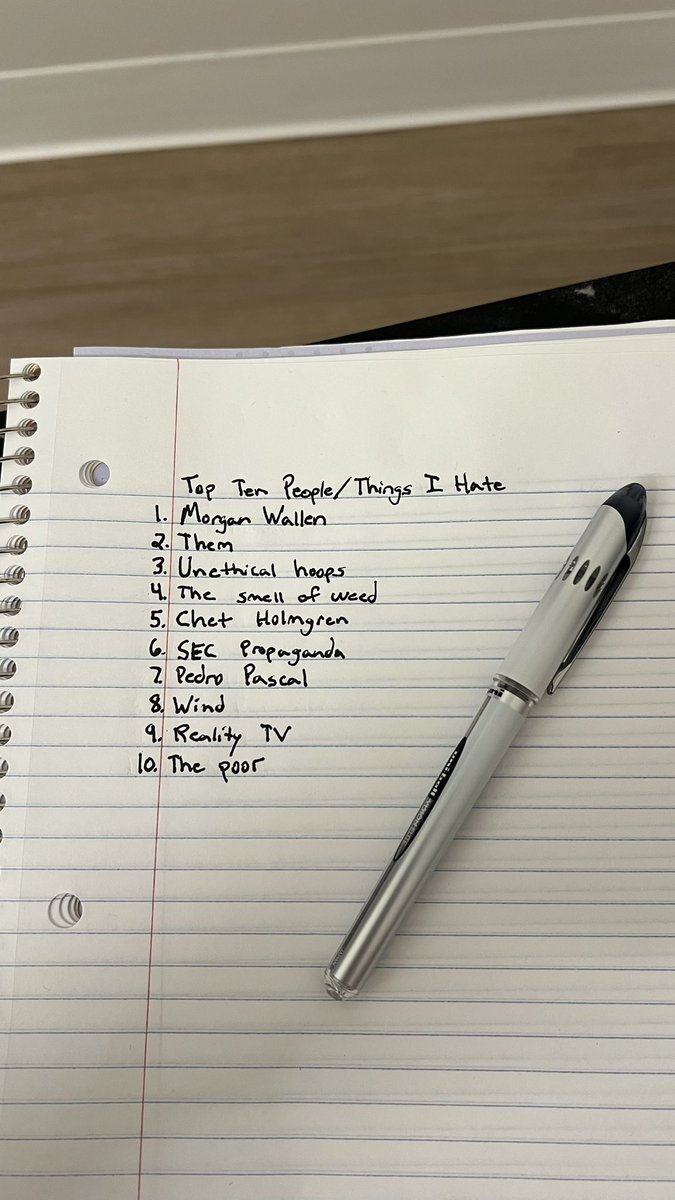 Top Ten People/Things I Hate
1. Morgan Wallen
2. Them
3. Unethical hoops
4. The smell of weed
5. Chet Holmgren
6. SEC Propaganda
7. Pedro Pascal
8. Wind
9. Reality TV
10. The poor
uni
uniball